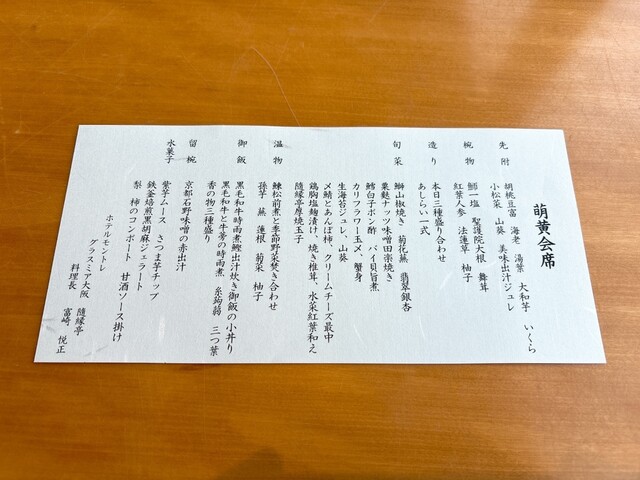 萌黄会席
先附
胡桃豆富 海老 湯葉 大和芋 いくら
小松菜 山葵 美味出汁ジュレ
椀物
鰤一塩 聖護院大根 舞茸
紅葉人参 法蓮草 柚子
造り
本日三種盛り合わせ
あしらい一式
旬菜
鰤山椒焼き 菊花蕪 翡翠銀杏
粟麩ナッツ味噌田楽焼き
鱈白子ポン酢 バイ貝旨煮
カリフラワー玉〆、蟹身
生海苔ジュレ、山葵
〆鯖とあんぽ柿、クリームチーズ最中
鶏胸塩麹漬け、焼き椎茸、水菜紅葉和え
随縁亭厚焼玉子
温物
鰊松前煮と季節野菜焚き合わせ
孫芋 蕪 蓮根 菊菜 柚子
御飯
黒毛和牛時雨煮鰹出汁炊き御飯の小丼り
黒毛和牛と牛蒡の時雨煮 糸蒟蒻 三つ葉
香の物三種盛り
留椀
京都石野味噌の赤出汁
水菓子
紫芋ムース さつま芋チップ
鉄釜焙煎黒胡麻ジェラート
梨 柿のコンポート 甘酒ソース掛け
ホテルモントレ
グラスミア大阪 随縁亭
料理長 富﨑 悦正